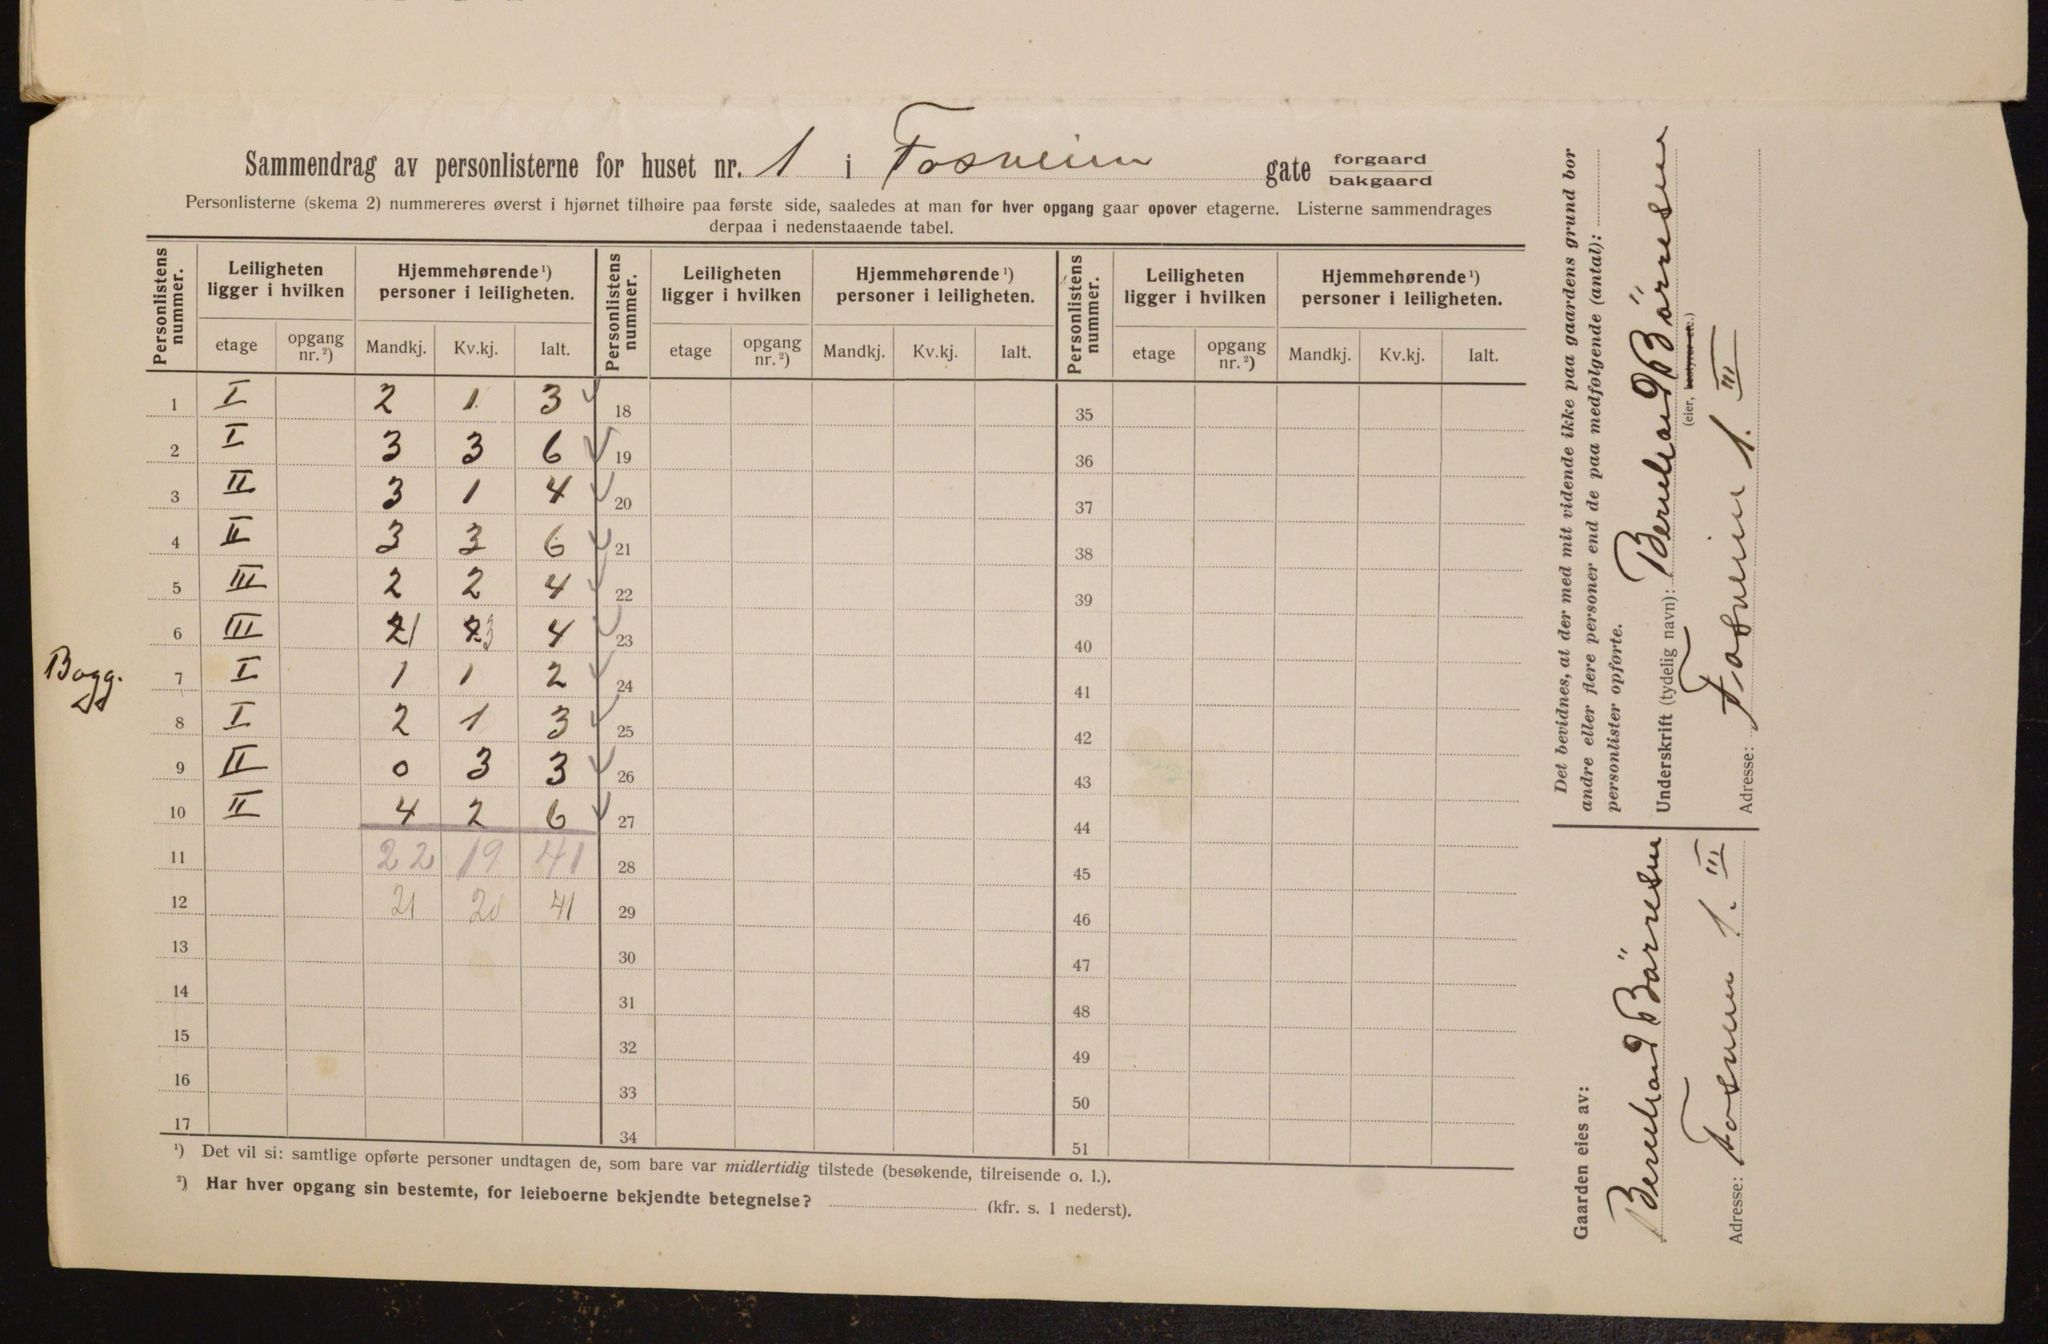 Sammendrag av personlisterne for huset nr. 1 i Fosveien gate forgaard bakgaard
Personlisterne (skema 2) nummereres øverst i hjørnet tilhøire paa første side, saaledes at man for hver opgang gaar opover etagerne. Listerne sammendrages
derpaa i nedenstaaende tabel.
Personlistens nummer. Leiligheten ligger i hvilken Hjemmehørende¹) personer i leiligheten. Personlistens nummer. Leiligheten ligger i hvilken Hjemmehørende¹) personer i leiligheten. Personlistens nummer. Leiligheten ligger i hvilken Hjemmehørende¹) personer i leiligheten.
etage opgang nr.²) Mandkj. Kv.kj. Ialt. etage opgang nr.²) Mandkj. Kv.kj. Ialt. etage opgang nr.²) Mandkj. Kv.kj. Ialt.
1 I 2 1 3 18 35
2 I 3 3 6 19 36
3 II 3 1 4 20 37
4 II 3 3 6 21 38
5 III 2 2 4 22 39
6 III 2 1 2 3 4 23 40
Bagg. 7 I 1 1 2 24 41
8 I 2 1 3 25 42
9 II 0 3 3 26 43
10 II 4 2 6 27 44
11 22 19 41 28 45
12 21 20 41 29 46
13 30 47
14 31 48
15 32 49
16 33 50
17 34 51
¹) Det vil si: samtlige opførte personer undtagen de, som bare var midlertidig tilstede (besøkende, tilreisende o. l.).
²) Har hver opgang sin bestemte, for leieboerne bekjendte betegnelse? (kfr. s. 1 nederst).
Det bevidnes, at der med mit vidende ikke paa gaardens grund bor
andre eller flere personer end de paa medfølgende (antal):
personlister opførte.
Underskrift (tydelig navn): Bernhard Börresen
(eier, bestyrer etc.)
Adresse: Fosveien 1. III
Gaarden eies av:
Bernhard Börresen
Adresse: Fosveien 1. III